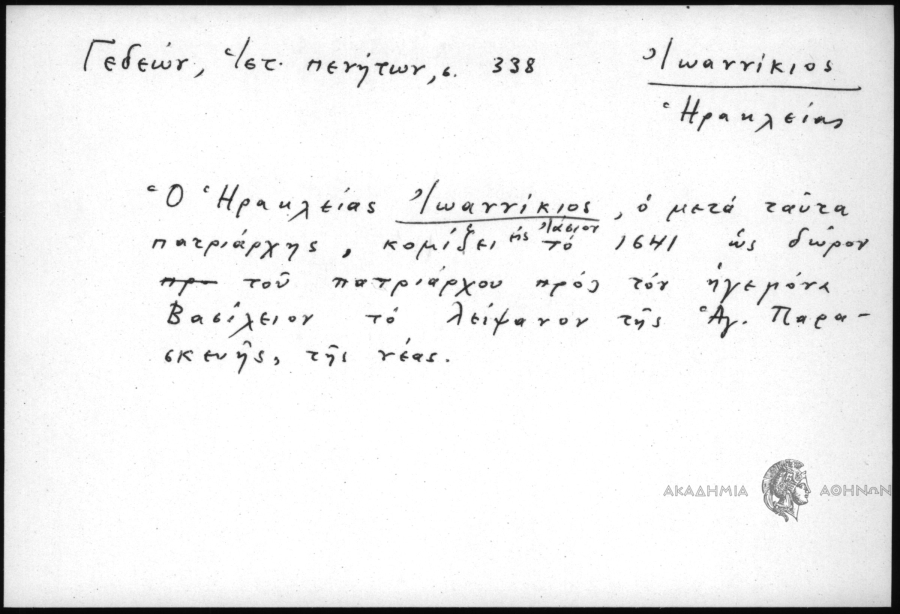 Γεδεών, Ἱστ. πενήτων, σ. 338
Ἰωαννίκιος
Ἡρακλείας
Ὁ Ἡρακλείας Ἰωαννίκιος, ὁ μετά ταῦτα
πατριάρχης, κομίζει εἰς Ἰάσιον τό 1641 ὡς δῶρον
πρ τοῦ πατριάρχου πρός τόν ἡγεμόνα
Βασίλειον τό λείψανον τῆς Ἁγ. Παρα-
σκευῆς, τῆς νέας.
ΑΚΑΔΗΜΙΑ ΑΘΗΝΩΝ